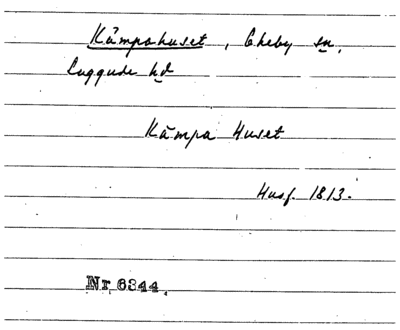 Kämpahuset, Ekeby sn,
Luggude hd
Kämpa Huset
Husf. 1813.
Nr 6344.